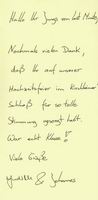 Hallo Ihr Jungs von Last Minute,
Nochmals vielen Dank,
daß Ihr auf unserer
Hochzeitsfeier im Kirchheimer
Schloß für so tolle
Stimmung gesorgt habt.
War echt klasse!
Viele Grüße
& Johannes